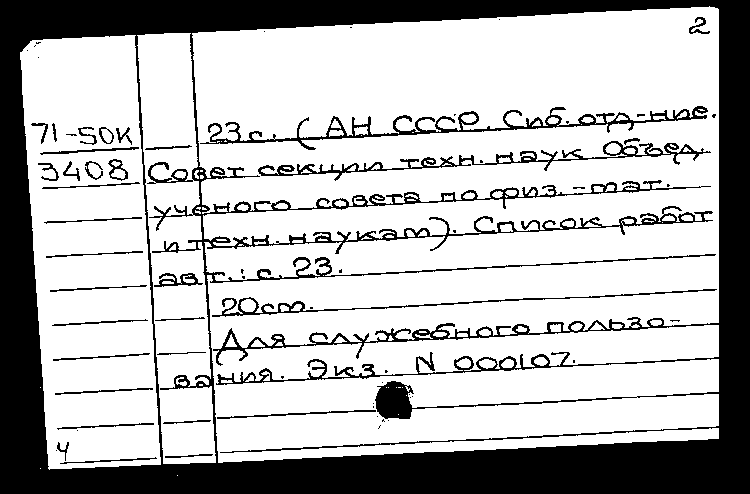 2
71-50К 23 с. (АН СССР. Сиб. отд-ние.
3408 Совет секции техн. наук Объед.
ученого совета по физ.-мат.
и техн. наукам). Список работ
авт.: с. 23.
20см.
Для служебного пользо-
вания. Экз. N 000107.
4